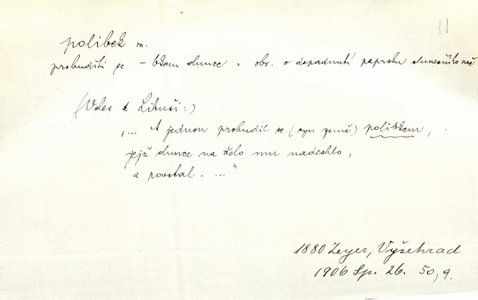 31
polibek m.
probuditi se - bkem slunce, obr. o dopadnutí paprsku slunečního na č
(Vdes k Libuši:)
"... A jednou probudil se (syn země) polibkem,
jejž slunce na čelo mu nadechlo,
a povstal. ..."
1880 Zeyer, Vyšehrad
1906 Sp. 26. 50,9.